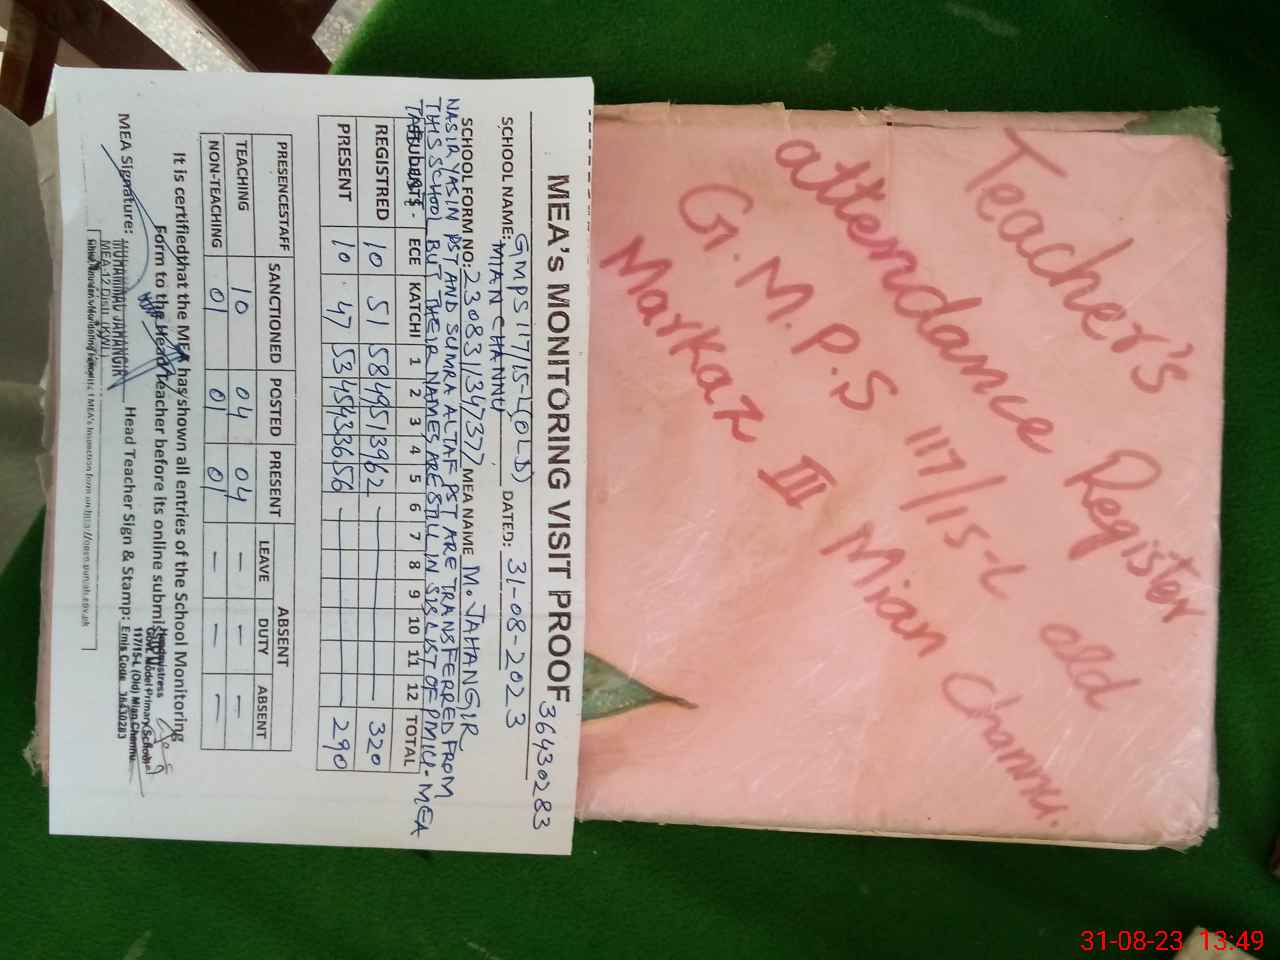 MEA's MONITORING VISIT PROOF 36430283
SCHOOL NAME: GMPS 117/15-L(OLD) MIAN CHANNU DATED: 31-08-2023
SCHOOL FORM NO: 230831134737 MEA NAME M. JAHANGIR
NASIR YASIN PST AND SUMRA ALTAF PST ARE TRANSFERRED FROM
THIS SCHOOL BUT THEIR NAMES ARE STILL IN SIS LIST OF PMIU- MEA
STUDENTS ECE KATCHI 1 2 3 4 5 6 7 8 9 10 11 12 TOTAL
REGISTRED 10 51 58 49 51 39 62 — — — — — — — 320
PRESENT 10 47 53 45 43 36 56 — — — — — — — 290
PRESENCESTAFF SANCTIONED POSTED PRESENT ABSENT
LEAVE DUTY ABSENT
TEACHING 10 04 04 — — —
NON-TEACHING 01 01 01 — — —
It is certified that the MEA has shown all entries of the School Monitoring
Form to the Head Teacher before its online submission
MEA Signature: Head Teacher Sign & Stamp:
MUHAMMAD JAHANGIR
MEA-12 Distt. (KWL)
Headmistress
Govt. Model Primary School
117/15-L (Old) Mian Channu
Emis Code 36430283
Teacher's
attendance Register
G.M.P.S 117/15-L old
Markaz III Mian Channu.
31-08-23 13:49